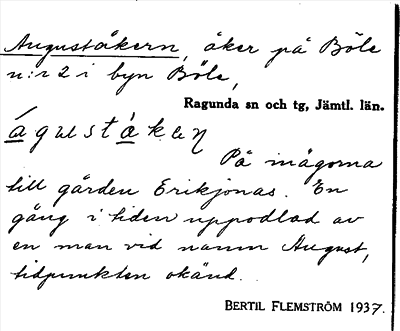 Auguståkern, åker på Böle
n:r 2 i byn Böle,
Ragunda sn och tg, Jämtl. län.
águstà̊keɳ
På inägorna
till gården Erikjonas. En
gång i tiden uppodlad av
en man vid namn August,
tidpunkten okänd.
BERTIL FLEMSTRÖM 1937.